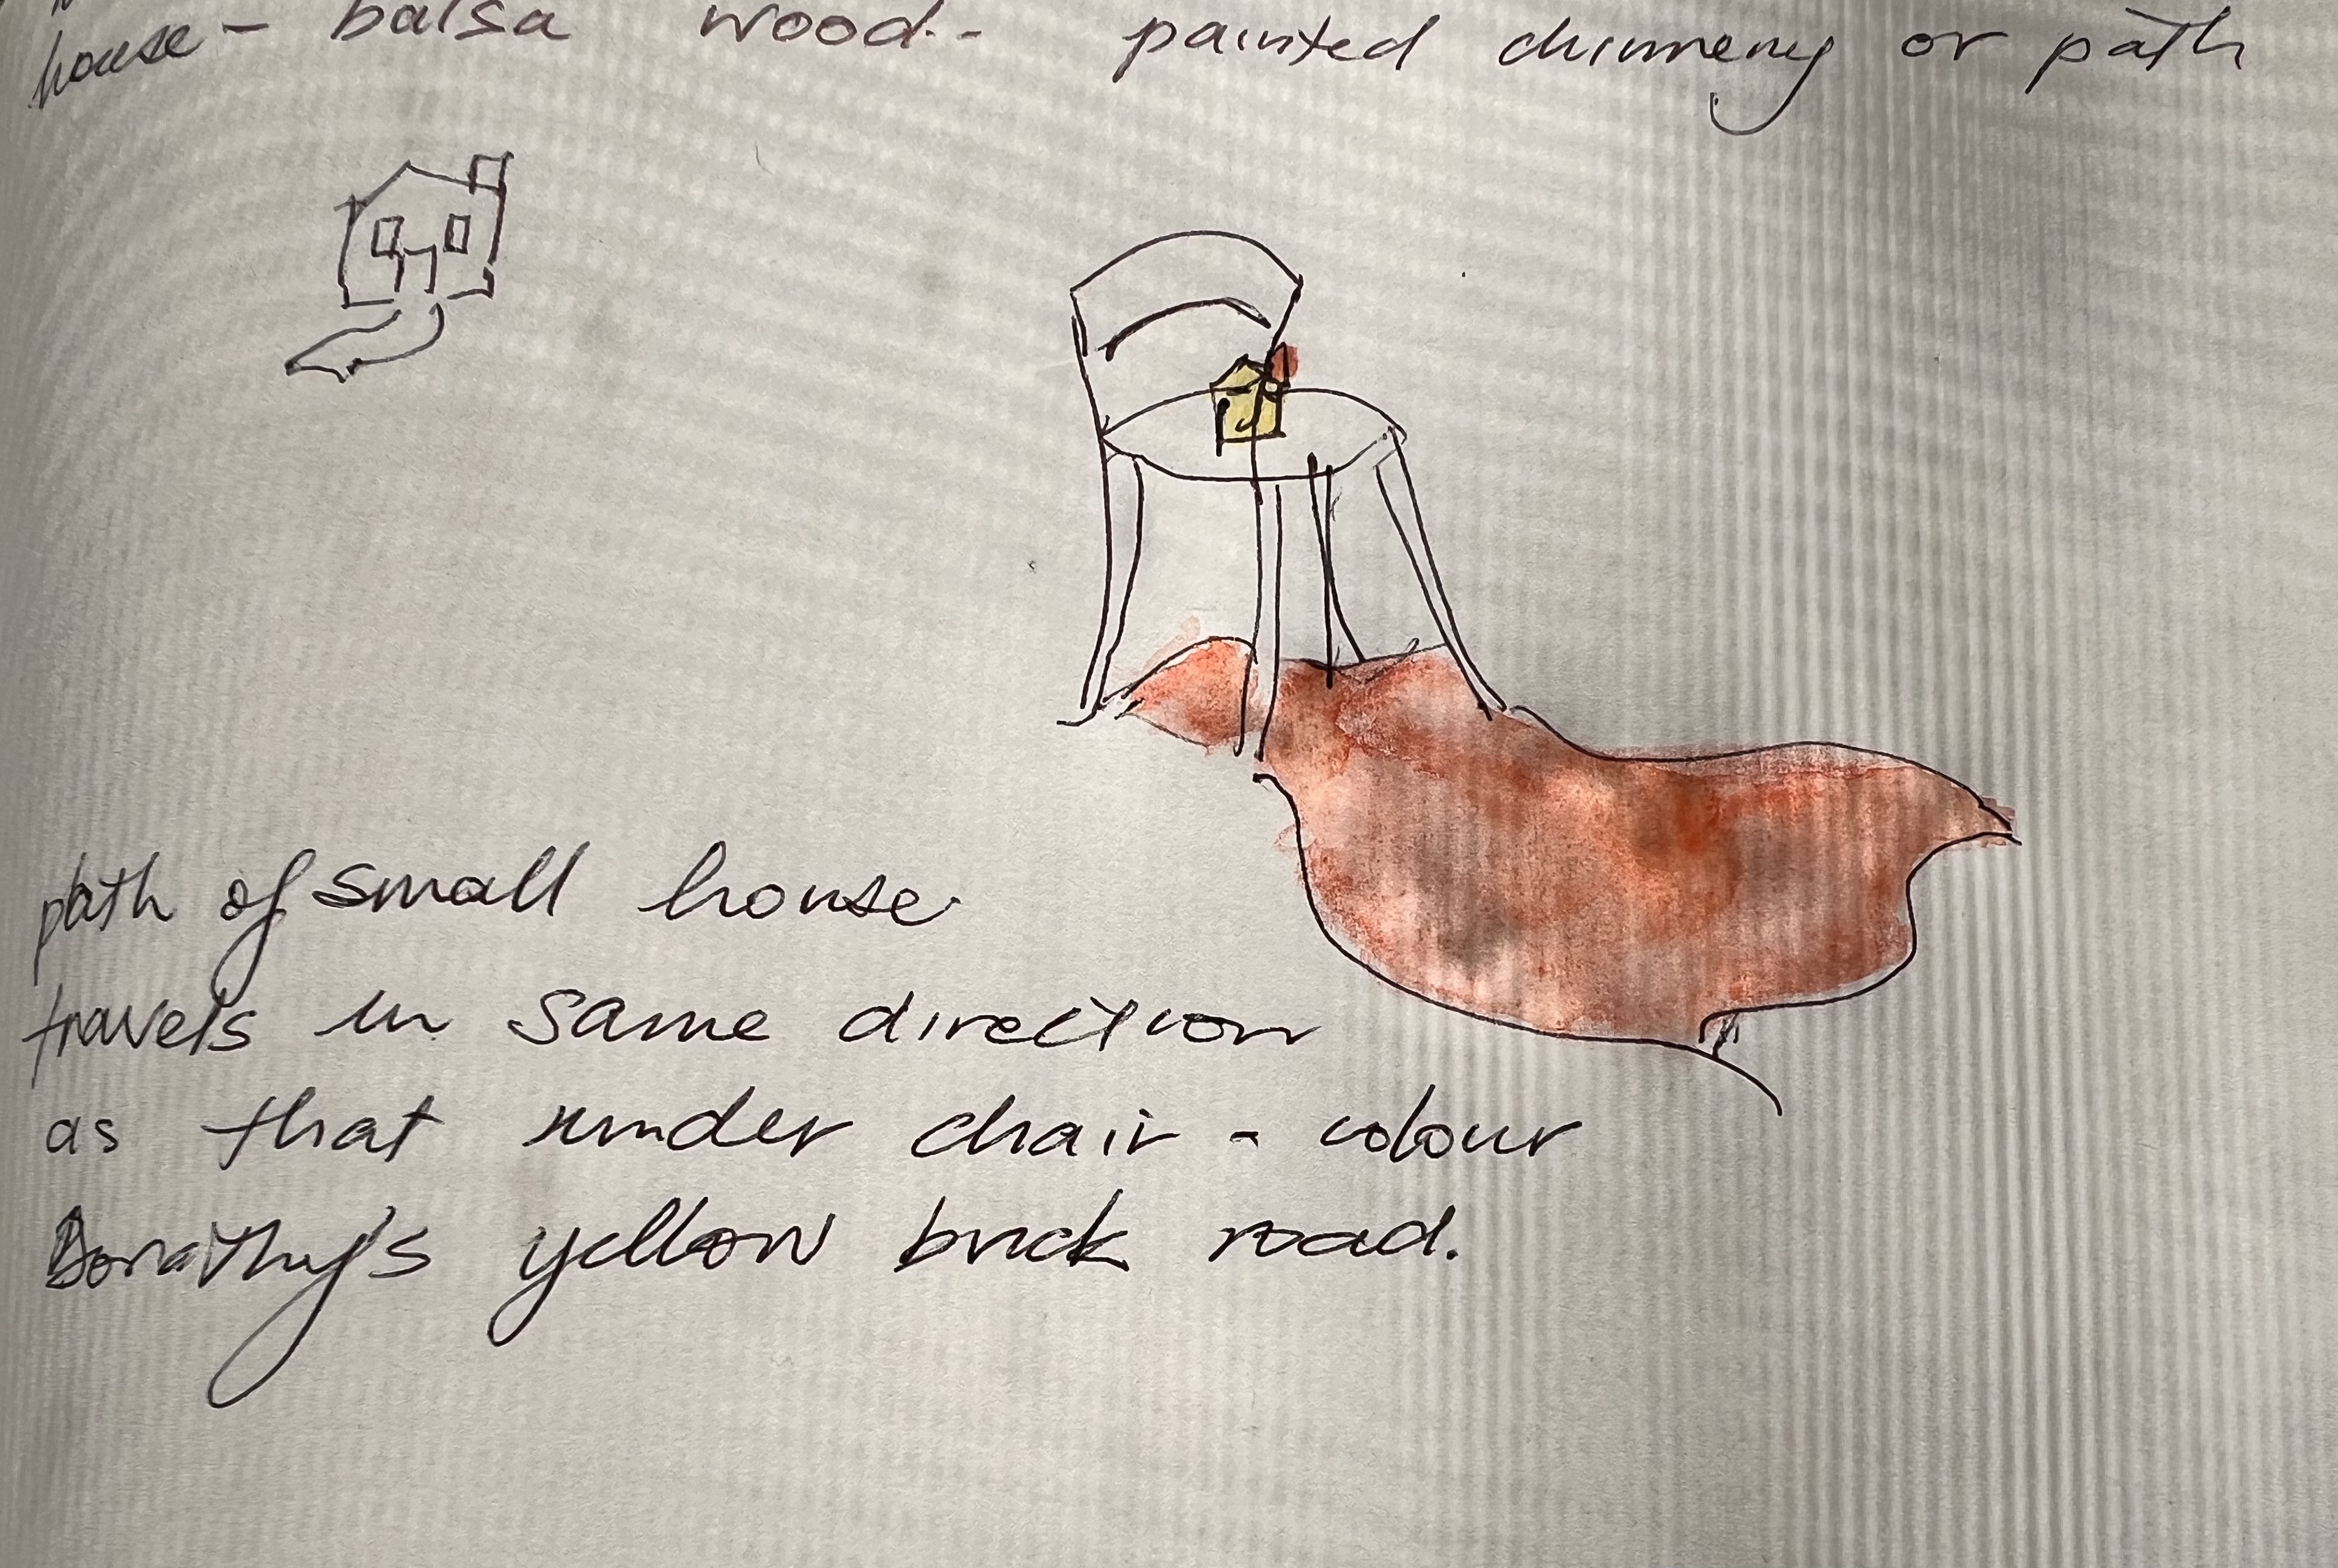 house - balsa wood.- painted chimney or path
path of small house
travels in same direction
as that under chair - colour
Dorathy's yellow brick road.